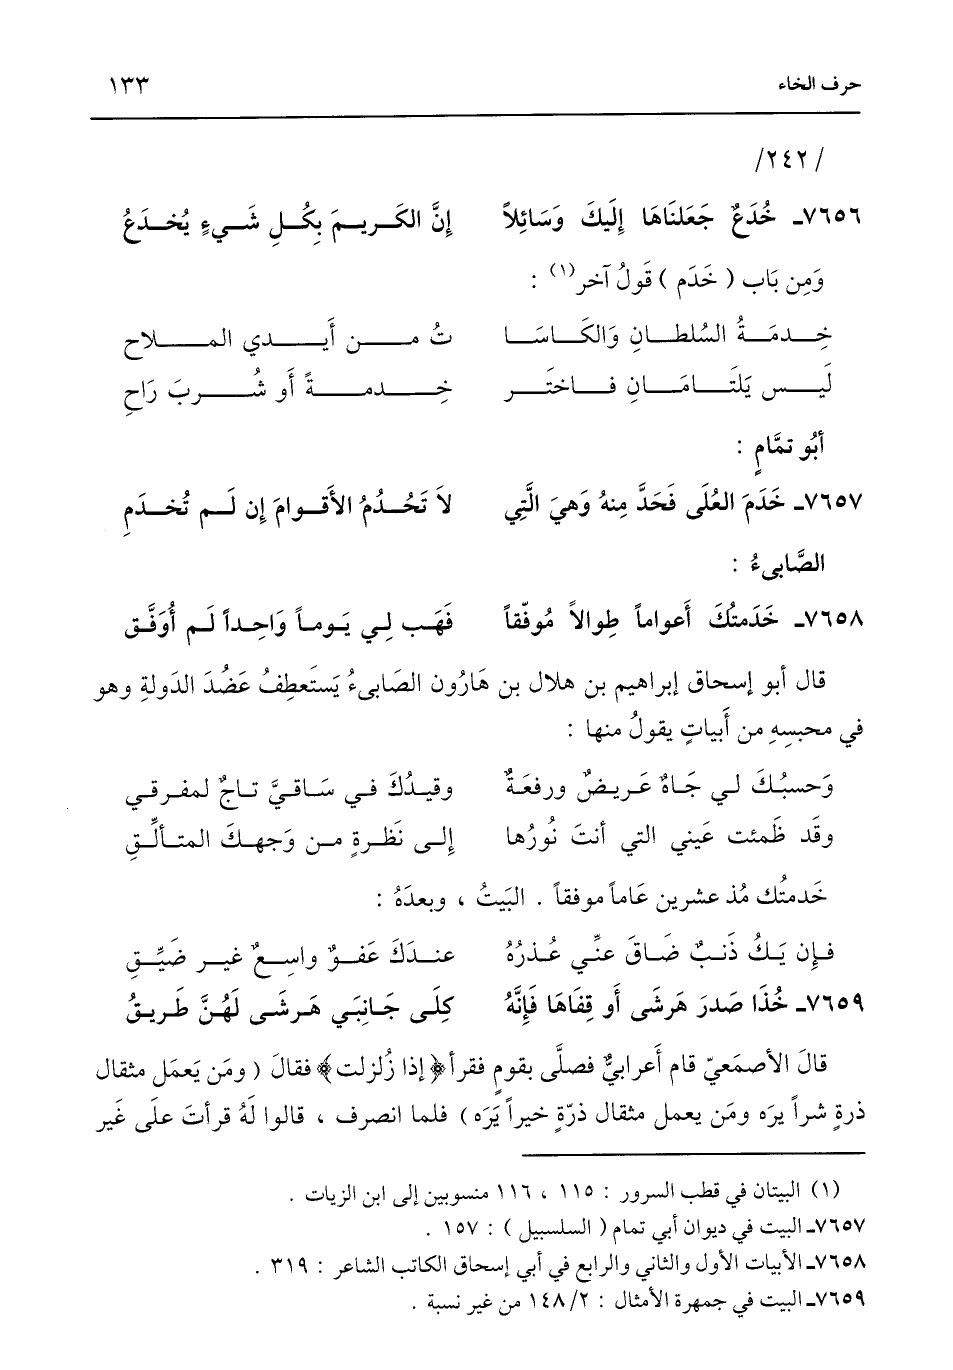 حرف الخاء ١٣٣
/٢٤٢/
٧٦٥٦ـ خُدَعٌ جَعَلنَاهَا إِلَيكَ وَسَائِلاً إِنَّ الكَريمَ بِكُلِ شَيءٍ يُخدَعُ
وَمِن بَاب ( خَدَم ) قَولُ آخر(١) :
خِدمَةُ السُلطانِ وَالكَاسَا تُ من أَيدي الملاحِ
لَيس يَلتَامَانِ فاختَر خِدمةً أَو شُربَ رَاحِ
أبُو تمَّامٍ :
٧٦٥٧ـ خَدَمَ العُلَى فَحَدَّ مِنهُ وَهيَ الَّتِي لاَ تَحُدُمُ الأَقوامَ إِن لَم تُخدَمِ
الصَّابىءُ :
٧٦٥٨ـ خَدَمتُكَ أعواماً طِوالاً مُوفّقاً فَهَب لِي يَوماً وَاحِداً لَم أُوَفَّق
قال أبو إسحاق إبراهيم بن هلال بن هَارُون الصَابىءُ يَستَعطِفُ عَضُدَ الدَولةِ وهو
في محبسِهِ من أَبياتٍ يقولُ منها :
وَحسبُكَ لي جَاهٌ عَريضٌ ورفعَةٌ وقيدُكَ في سَاقيَّ تاجٌ لمفرقي
وقَد ظَمئت عَيني التي أنتَ نُورُها إلى نَظرةٍ من وَجهكَ المتألِّقِ
خَدمتُك مُذ عشرين عَاماً موفقاً . البَيتُ ، وبعدَهُ :
فإن يَكُ ذَنبٌ ضَاقَ عنِّي عُذرُهُ عندَكَ عَفوٌ واسِعٌ غير ضَيِّقِ
٧٦٥٩ـ خُذَا صَدرَ هَرشَى أَو قِفَاهَا فَإِنَّهُ كِلَى جَانِبَي هَرشَى لَهُنَّ طَريقُ
قالَ الأصمَعيّ قام أَعرابيٌّ فصلَّى بقومٍ فقرأ ﴿إذا زُلزلت﴾ فقالَ ( ومَن يَعمَل مثقال
ذرةٍ شراً يرَه ومَن يعمل مثقال ذرّةٍ خيراً يَرَه ) فلما انصرف ، قالوا لَهُ قرأتَ علَى غَير
(١) البيتان في قطب السرور : ١١٥ ، ١١٦ منسوبين إلى ابن الزيات .
٧٦٥٧ـ البيت في ديوان أبي تمام ( السلسبيل ) : ١٥٧ .
٧٦٥٨ـ الأبيات الأول والثاني والرابع في أبي إسحاق الكاتب الشاعر : ٣١٩ .
٧٦٥٩ـ البيت في جمهرة الأمثال : ١٤٨/٢ من غير نسبة .